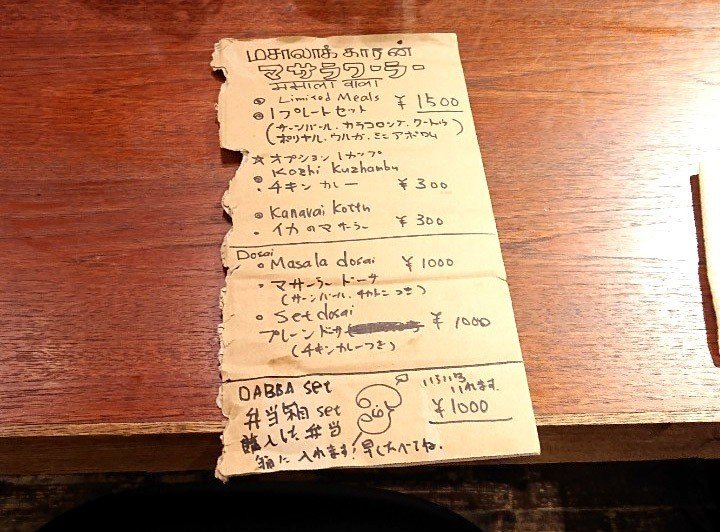 மசாலாக் காரன்
マサラワーラー
मसाला वाला
Limited Meals ¥1500
1プレートセット
(サーンバール、カラコロンブ、クートゥ
ポリヤル、ウルガ、ミニアポロム
★オプション1カップ
Kozhi Kuzhambu
チキンカレー ¥300
Kanavai Kottu
イカのマサーラー ¥300
Dosai
Masala dosai ¥1000
マサーラードーサ
(サーンバール、チャトニつき)
Set dosai
プレーンドーサ ¥1000
(チキンカレーつき)
DABBA set いろいろ
弁当箱 set いれます。
購入した弁当 ¥1000
箱に入れます!早くたべてね。